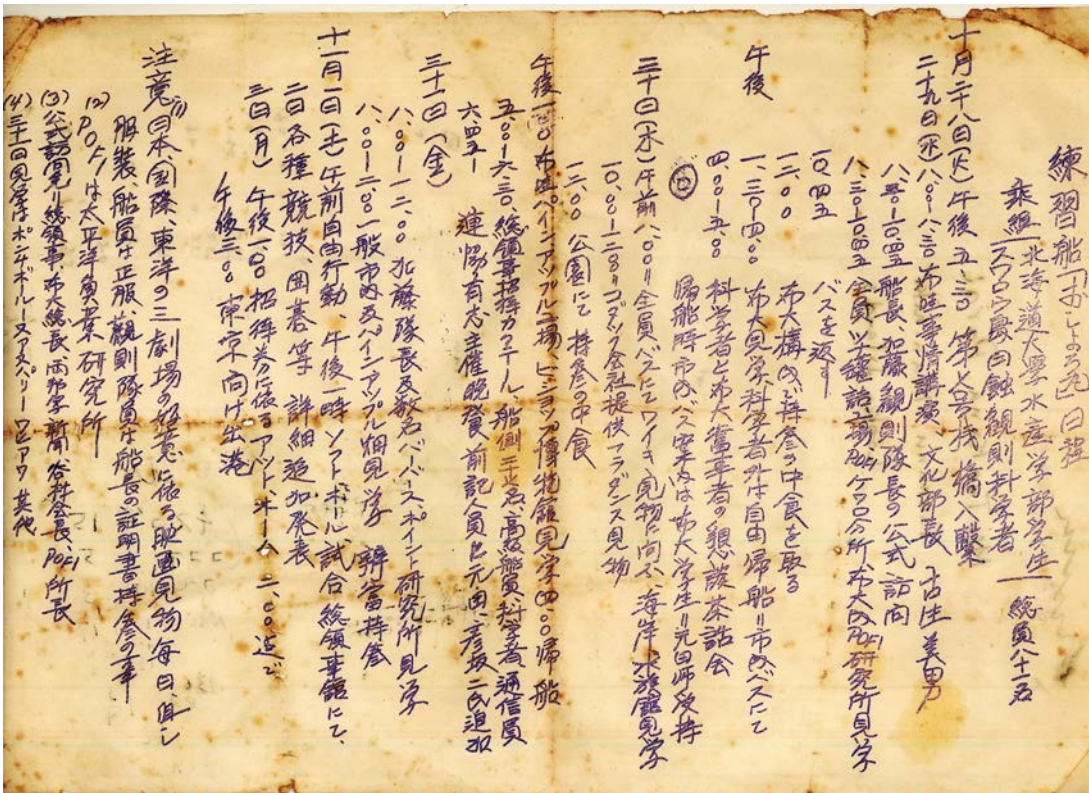 練習船「おしょろ丸」日程
乗組 北海道大学水産学部学生
スワロウ島日蝕観測科学者 総員八十名
十月二十八日(火)午後五.三〇 第七号桟橋入繋
二十九日(水)八.〇〇-八.三〇 布哇事情講演 文化部長 古住美男
八.五〇-一〇.四五 船長、加藤観測隊長の公式訪問
八.三〇-一〇.四五 全員ツナ罐詰工場、POFI、ケワロ分所、布大内POFI研究所見学
一〇.四五 バスを返す
一二.〇〇 布大構内、持参の中食を取る
午後 一.三〇-四.〇〇 布大見学、科学者外は自由帰船リ市内バスにて
四.〇〇-五.〇〇 科学者と布大奮事者の懇談茶話会
帰船時市内バス案内は布大学生リ元田師受持
三十日(木)午前八.〇〇リ全員バスにてワイキキ見物に向ふ、海岸、水族館見学
一〇.〇〇-一一.二〇リコダック会社提供フラダンス見物
一二.〇〇 公園にて持参の中食
午後一.〇〇布哇パインアップル工場、ビショップ博物館見学(四.〇〇帰船
五.〇〇-六.三〇 総領事招待カクテール、船側三十名、高級船員、科学者、通信員
六.四五- 連協有志主催晩餐前記人員と元田、彦坂二氏追加
三十一日(金)
八.〇〇-一二.〇〇 加藤隊長及数名バーバースポイント研究所見学
八.〇〇-二.〇〇一般市内及パインアップル畑見学 辨当持参
十一月一日(土)午前自由行動、午後一時ソフトボール試合総領事館にて、
二日各種競技、囲碁等 詳細追加発表
三日(月) 午後一.〇〇 招待券に依るアットホーム 二.〇〇迄で
午後三.〇〇 東京向け出港
注意(1)日本、国際、東洋の三劇場の好意に依る映画見物毎日、但し
服装、船員は正服、観測隊員は船長の証明書持参の事
(2)POFIは太平洋漁業研究所
(3)公式訪問先リ総領事、布大総長、両邦字新聞、各科会長、POFI所長
(4)三十一日見学はポンチボール、ヌアヌパリー、ワヒアワ其他